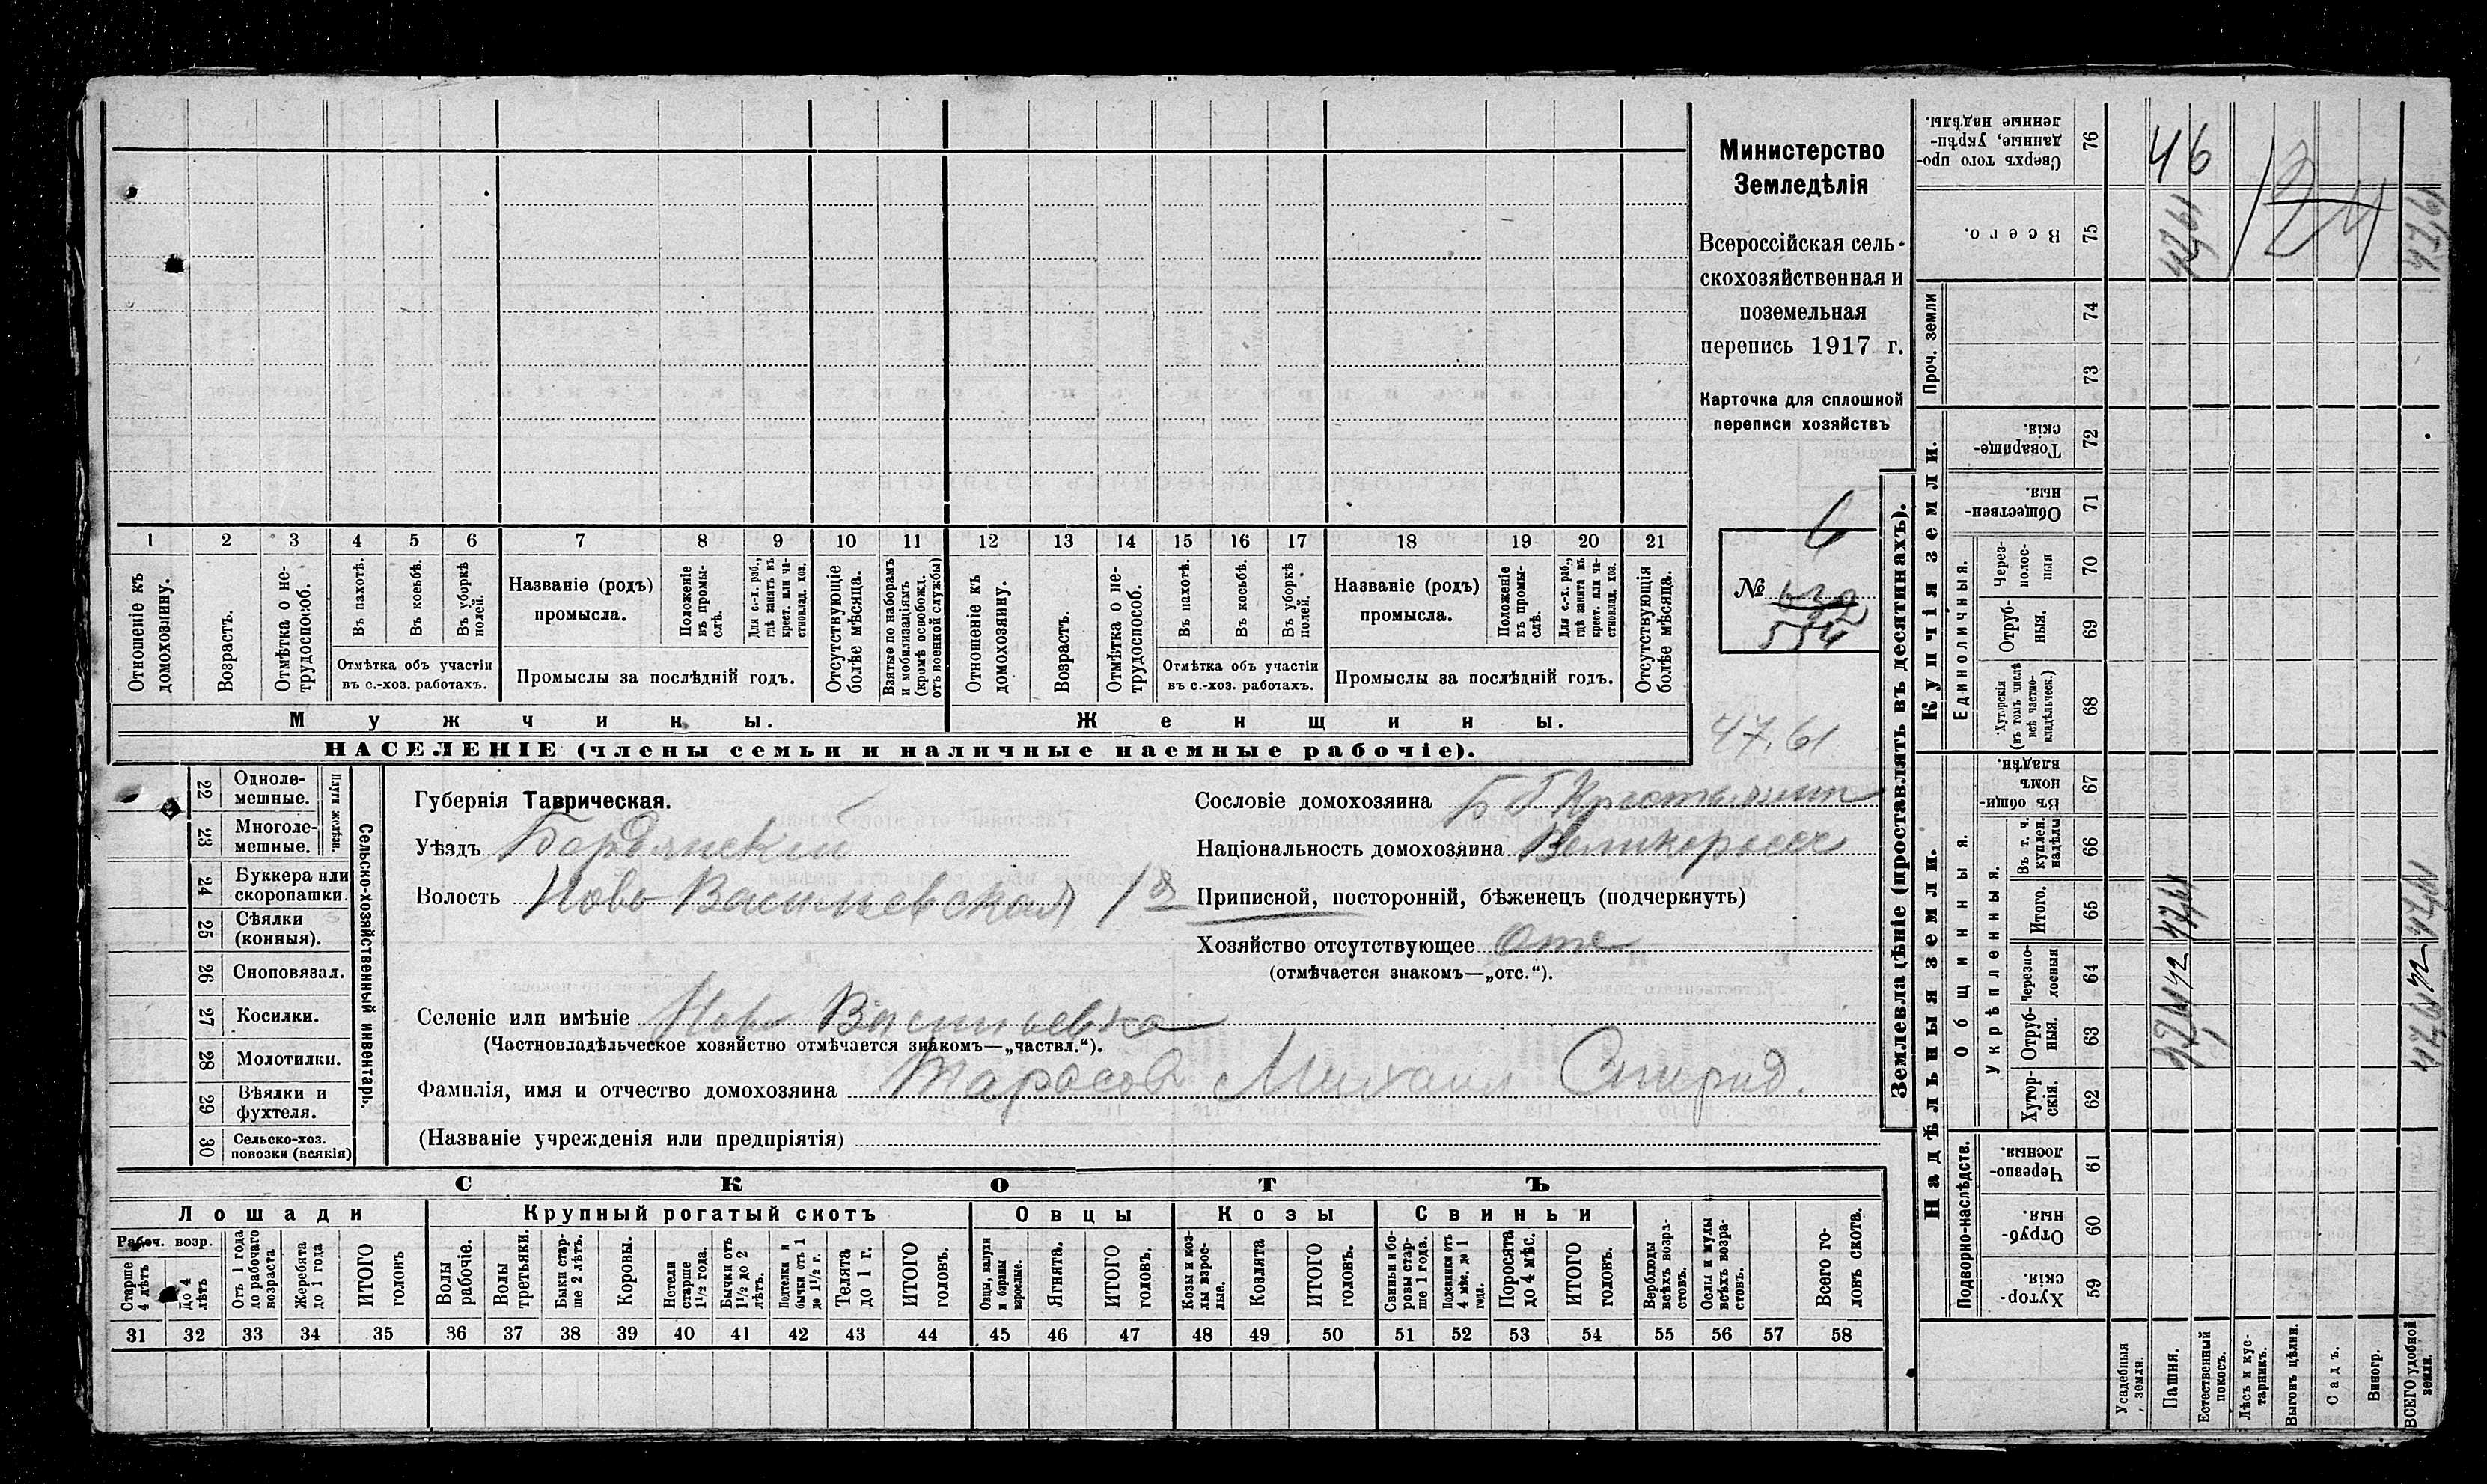 Министерство
Земледѣлія
Всероссійская сель-
скохозяйственная и
поземельная
перепись 1917 г.
Карточка для сплошной
переписи хозяйствъ
6
№ 554
47.61
1 2 3 4 5 6 7 8 9 10 11 12 13 14 15 16 17 18 19 20 21
Отношеніе къ домохозяину.
Возрастъ.
Отмѣтка о не-трудоспособ.
Въ пахотѣ.
Въ косьбѣ.
Въ уборкѣ полей.
Отмѣтка объ участіи
въ с.-хоз. работахъ.
Названіе (родъ)
промысла.
Положеніе въ промы-слѣ.
Для с.-х. раб., гдѣ занятъ въ крест. или ча-стновлад. хоз.
Промыслы за послѣдній годъ.
Отсутствующіе болѣе мѣсяца.
Взятые по наборамъ и мобилизаціямъ (кромѣ освобожд. отъ военной службы)
Отношеніе къ домохозяину.
Возрастъ.
Отмѣтка о не-трудоспособ.
Въ пахотѣ.
Въ косьбѣ.
Въ уборкѣ полей.
Отмѣтка объ участіи
въ с.-хоз. работахъ.
Названіе (родъ)
промысла.
Положеніе въ промы-слѣ.
Для с.-х. раб., гдѣ занятъ въ крест. или ча-стновлад. хоз.
Промыслы за послѣдній годъ.
Отсутствующія болѣе мѣсяца.
Мужчины. Женщины.
НАСЕЛЕНІЕ (члены семьи и наличные наемные рабочіе).
22 Одноле-мешные.
23 Многоле-мешные.
Плуги желѣзн.
24 Буккера или скоропашки.
25 Сѣялки (конныя).
26 Сноповязал.
27 Косилки.
28 Молотилки.
29 Вѣялки и фухтеля.
30 Сельско-хоз. повозки (всякія)
Сельско-хозяйственный инвентарь.
Губернія Таврическая.
Уѣздъ Бердянский
Волость Ново Васильевская 1я
Селеніе или имѣніе Ново Васильевка
(Частновладѣльческое хозяйство отмѣчается знакомъ—„частвл.“).
Фамилія, имя и отчество домохозяина Тарасов Михаил Спирид.
(Названіе учрежденія или предпріятія)
Сословіе домохозяина
Національность домохозяина Великоросс
Приписной, посторонній, бѣженецъ (подчеркнуть)
Хозяйство отсутствующее Отс
(отмѣчается знакомъ—„отс.“).
СКОТЪ
Лошади Крупный рогатый скотъ Овцы Козы Свиньи
Рабоч. возр.
Старше 4 лѣтъ
До 4 лѣтъ
Отъ 1 года до рабочаго возраста
Жеребята до 1 года
ИТОГО головъ
Волы рабочіе.
Волы третьяки.
Быки стар-ше 2 лѣтъ.
Коровы.
Нетели старше 1½ года.
Бычки отъ 1½ до 2 лѣтъ.
Подтелки и бычки отъ 1 до 1½ г.
Телята до 1 г.
ИТОГО головъ.
Овцы, валухи и бараны взрослые.
Ягнята.
ИТОГО головъ.
Козы и коз-лы взрос-лые.
Козлята
ИТОГО головъ.
Свиньи и бо-ровы стар-ше 1 года.
Подсвинки отъ 4 мѣс. до 1 года.
Поросята до 4 мѣс.
ИТОГО головъ.
Верблюды всѣхъ возра-стовъ.
Ослы и мулы всѣхъ возра-стовъ.
Всего го-ловъ скота.
31 32 33 34 35 36 37 38 39 40 41 42 43 44 45 46 47 48 49 50 51 52 53 54 55 56 57 58
Землевладѣніе (проставлять въ десятинахъ).
Надѣльныя земли.
Купчія земли.
Проч. земли
Подворно-наслѣдств.
Общинныя.
Укрѣпленныя.
Единоличныя.
Сверхъ того про-данные, укрѣп-ленные надѣлы. 76
Всего. 75
74
73
Товарище-скія. 72
Обществен-ныя. 71
Через-полос-ныя 70
Отруб-ныя. 69
Хуторскія (въ томъ числѣ всѣ частно-владѣльческ.) 68
Въ общи-номъ владѣн. 67
Въ т. ч. куплен. надѣлы 66
Итого. 65
Черезпо-лосныя 64
Отруб-ныя. 63
Хутор-скія. 62
Черезпо-лосныя 61
Отруб-ныя. 60
Хутор-скія. 59
Усадебныя земли.
Пашня.
Естественный покосъ.
Лѣсъ и кус-тарникъ.
Выгонъ цѣлин.
Садъ.
Виногр.
ВСЕГО удобной земли.
46
47,61
47,61